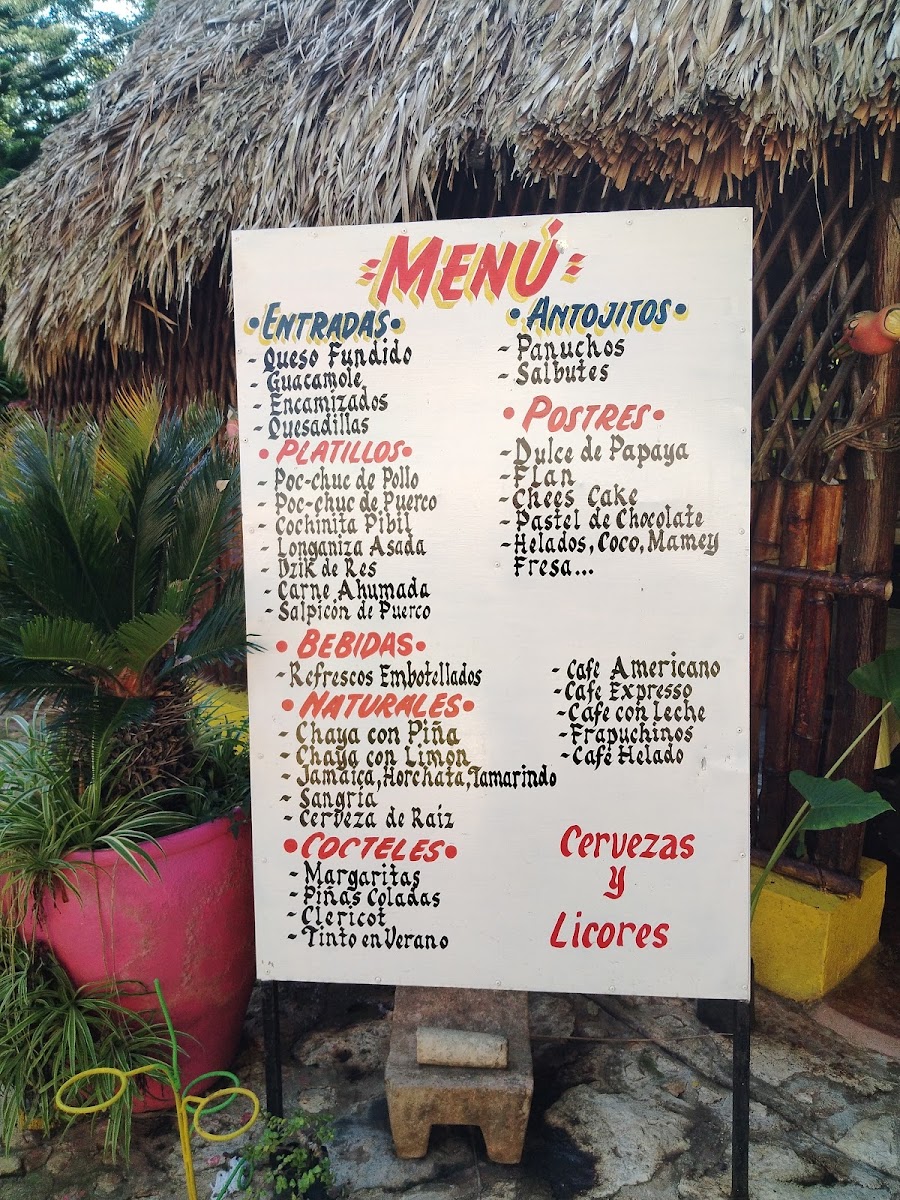 MENÚ
•ENTRADAS•
- Queso Fundido
- Guacamole
- Encamizados
- Quesadillas
•PLATILLOS•
- Poc-chuc de Pollo
- Poc-chuc de Puerco
- Cochinita Pibil
- Longaniza Asada
- Dzik de Res
- Carne Ahumada
- Salpicón de Puerco
•BEBIDAS•
- Refrescos Embotellados
•NATURALES•
- Chaya con Piña
- Chaya con Limon
- Jamaica, Horchata, Tamarindo
- Sangría
- Cerveza de Raíz
•COCTELES•
- Margaritas
- Piñas Coladas
- Clericot
- Tinto en Verano
•ANTOJITOS•
- Panuchos
- Salbutes
•POSTRES•
- Dulce de Papaya
- Flan
- Chees Cake
- Pastel de Chocolate
- Helados, Coco, Mamey
Fresa...
- Cafe Americano
- Cafe Expresso
- Cafe con Leche
- Frapuchinos
- Café Helado
Cervezas
y
Licores